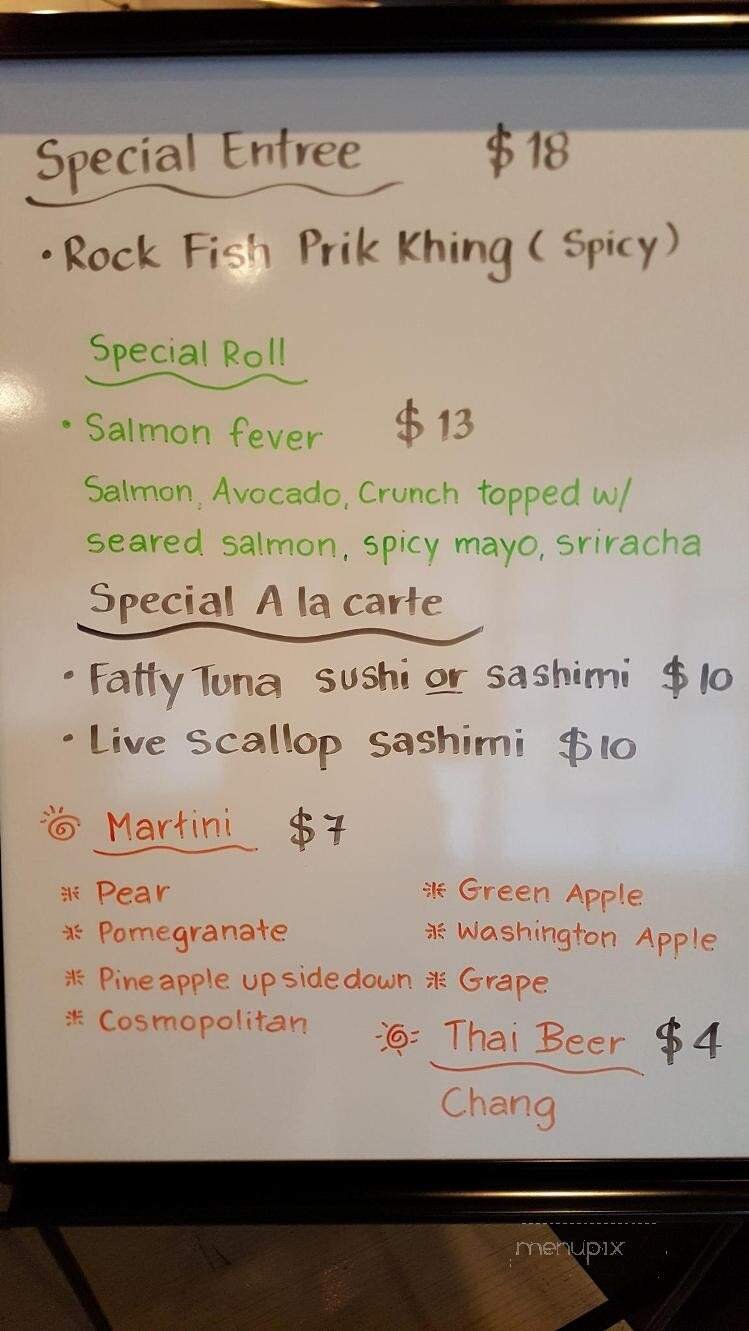 Special Entree $18
• Rock Fish Prik Khing ( Spicy )
Special Roll
• Salmon fever $13
Salmon, Avocado, Crunch topped w/
seared salmon, spicy mayo, sriracha
Special A la carte
• Fatty Tuna sushi or sashimi $10
• Live scallop sashimi $10
Martini $7
Pear
Green Apple
Pomegranate
Washington Apple
Pineapple upsidedown
Grape
Cosmopolitan
Thai Beer $4
Chang
menupix